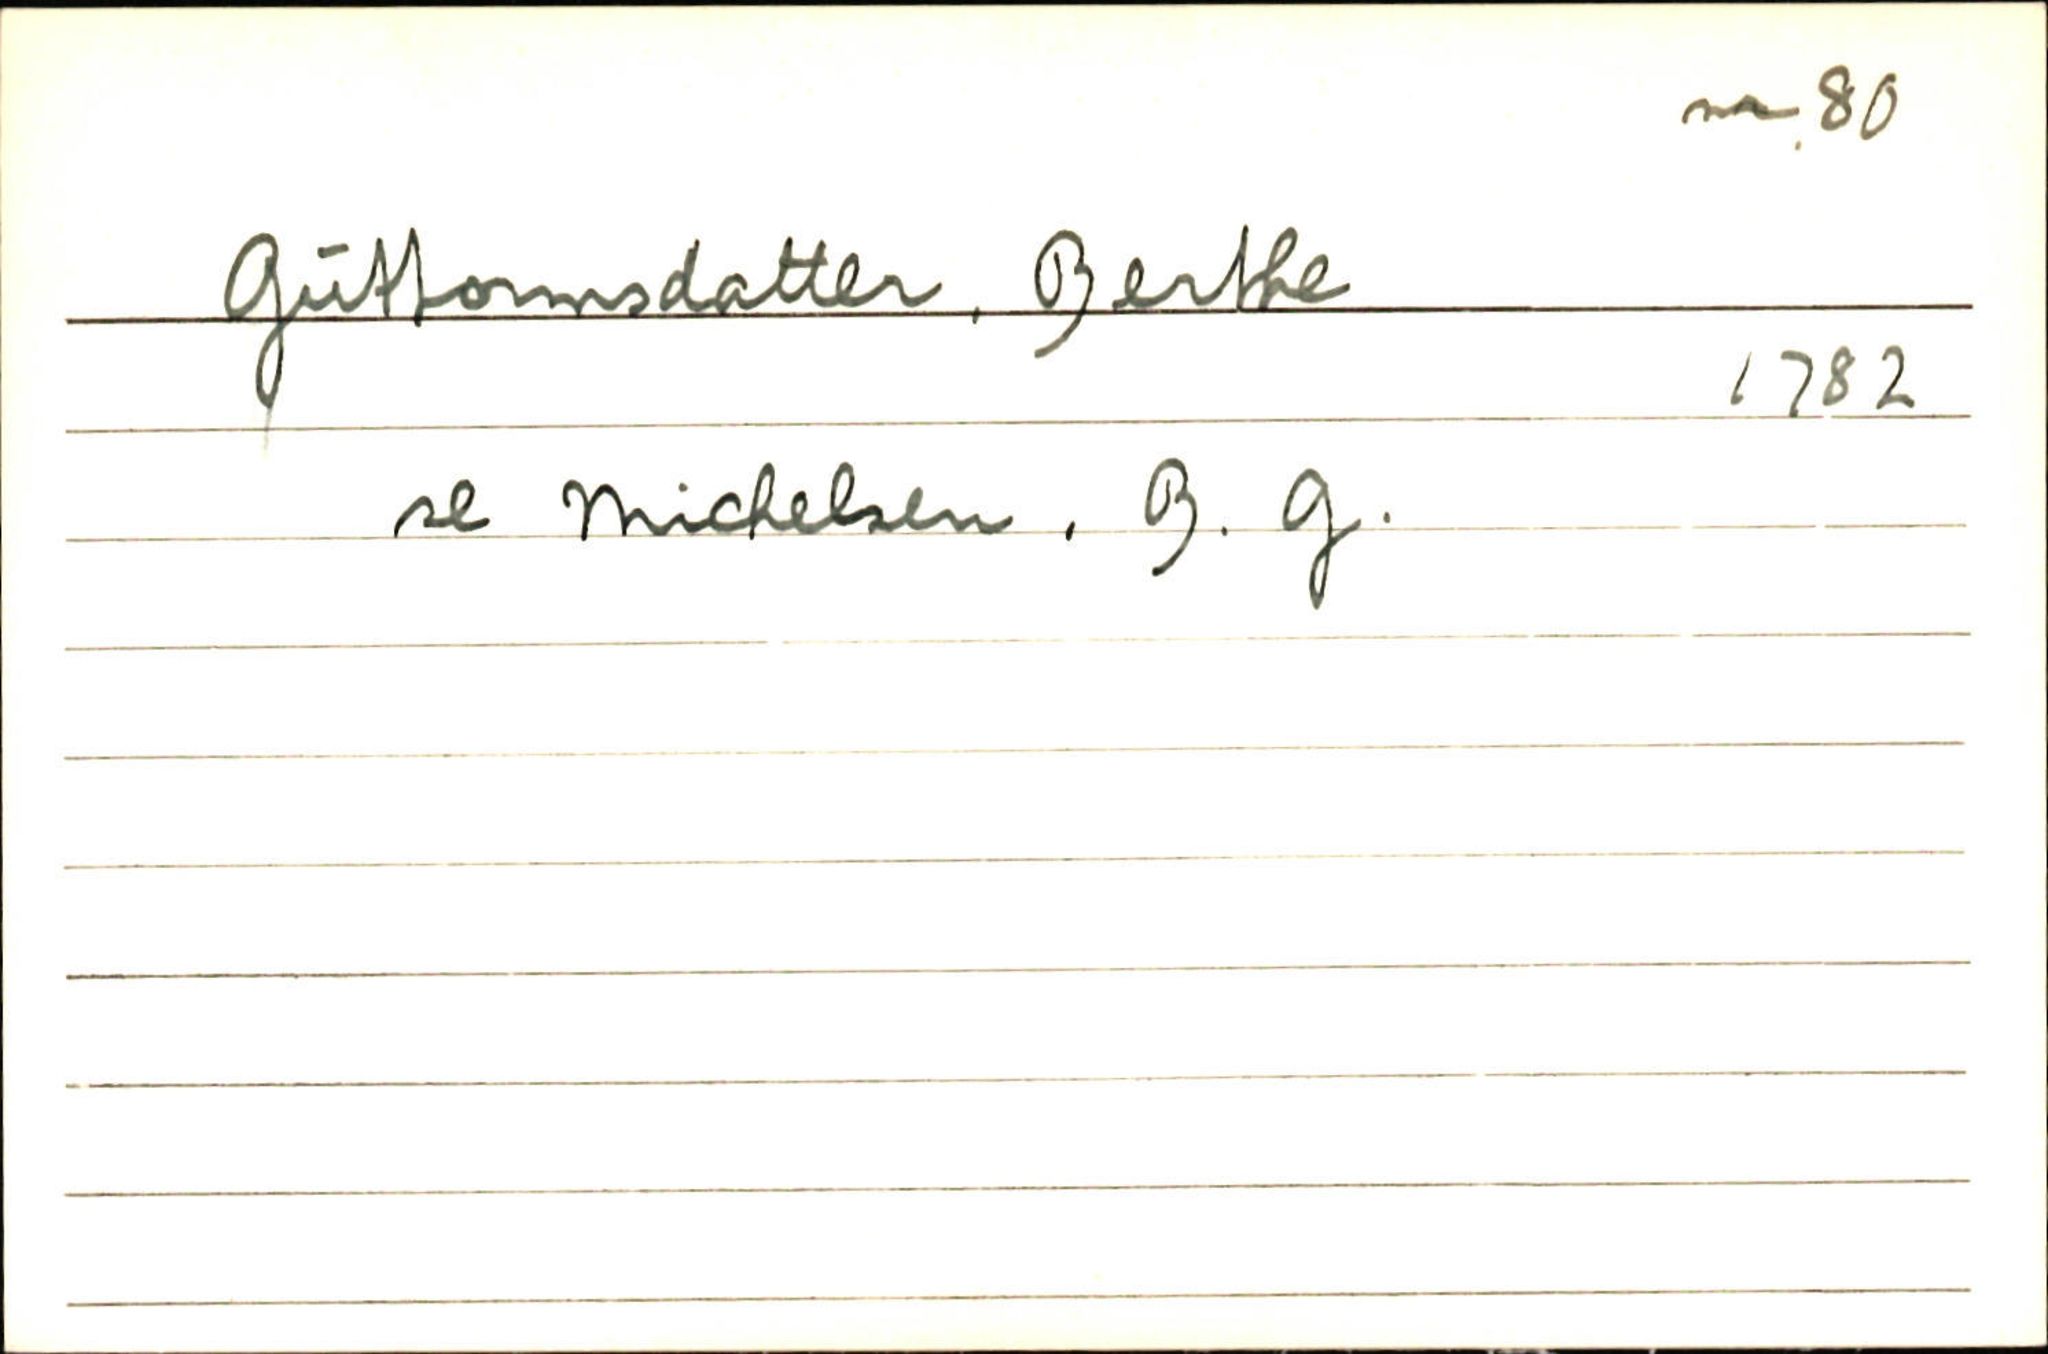 nr. 80
Gūttormsdatter, Berthe
1782
se Michelsen, B. G.